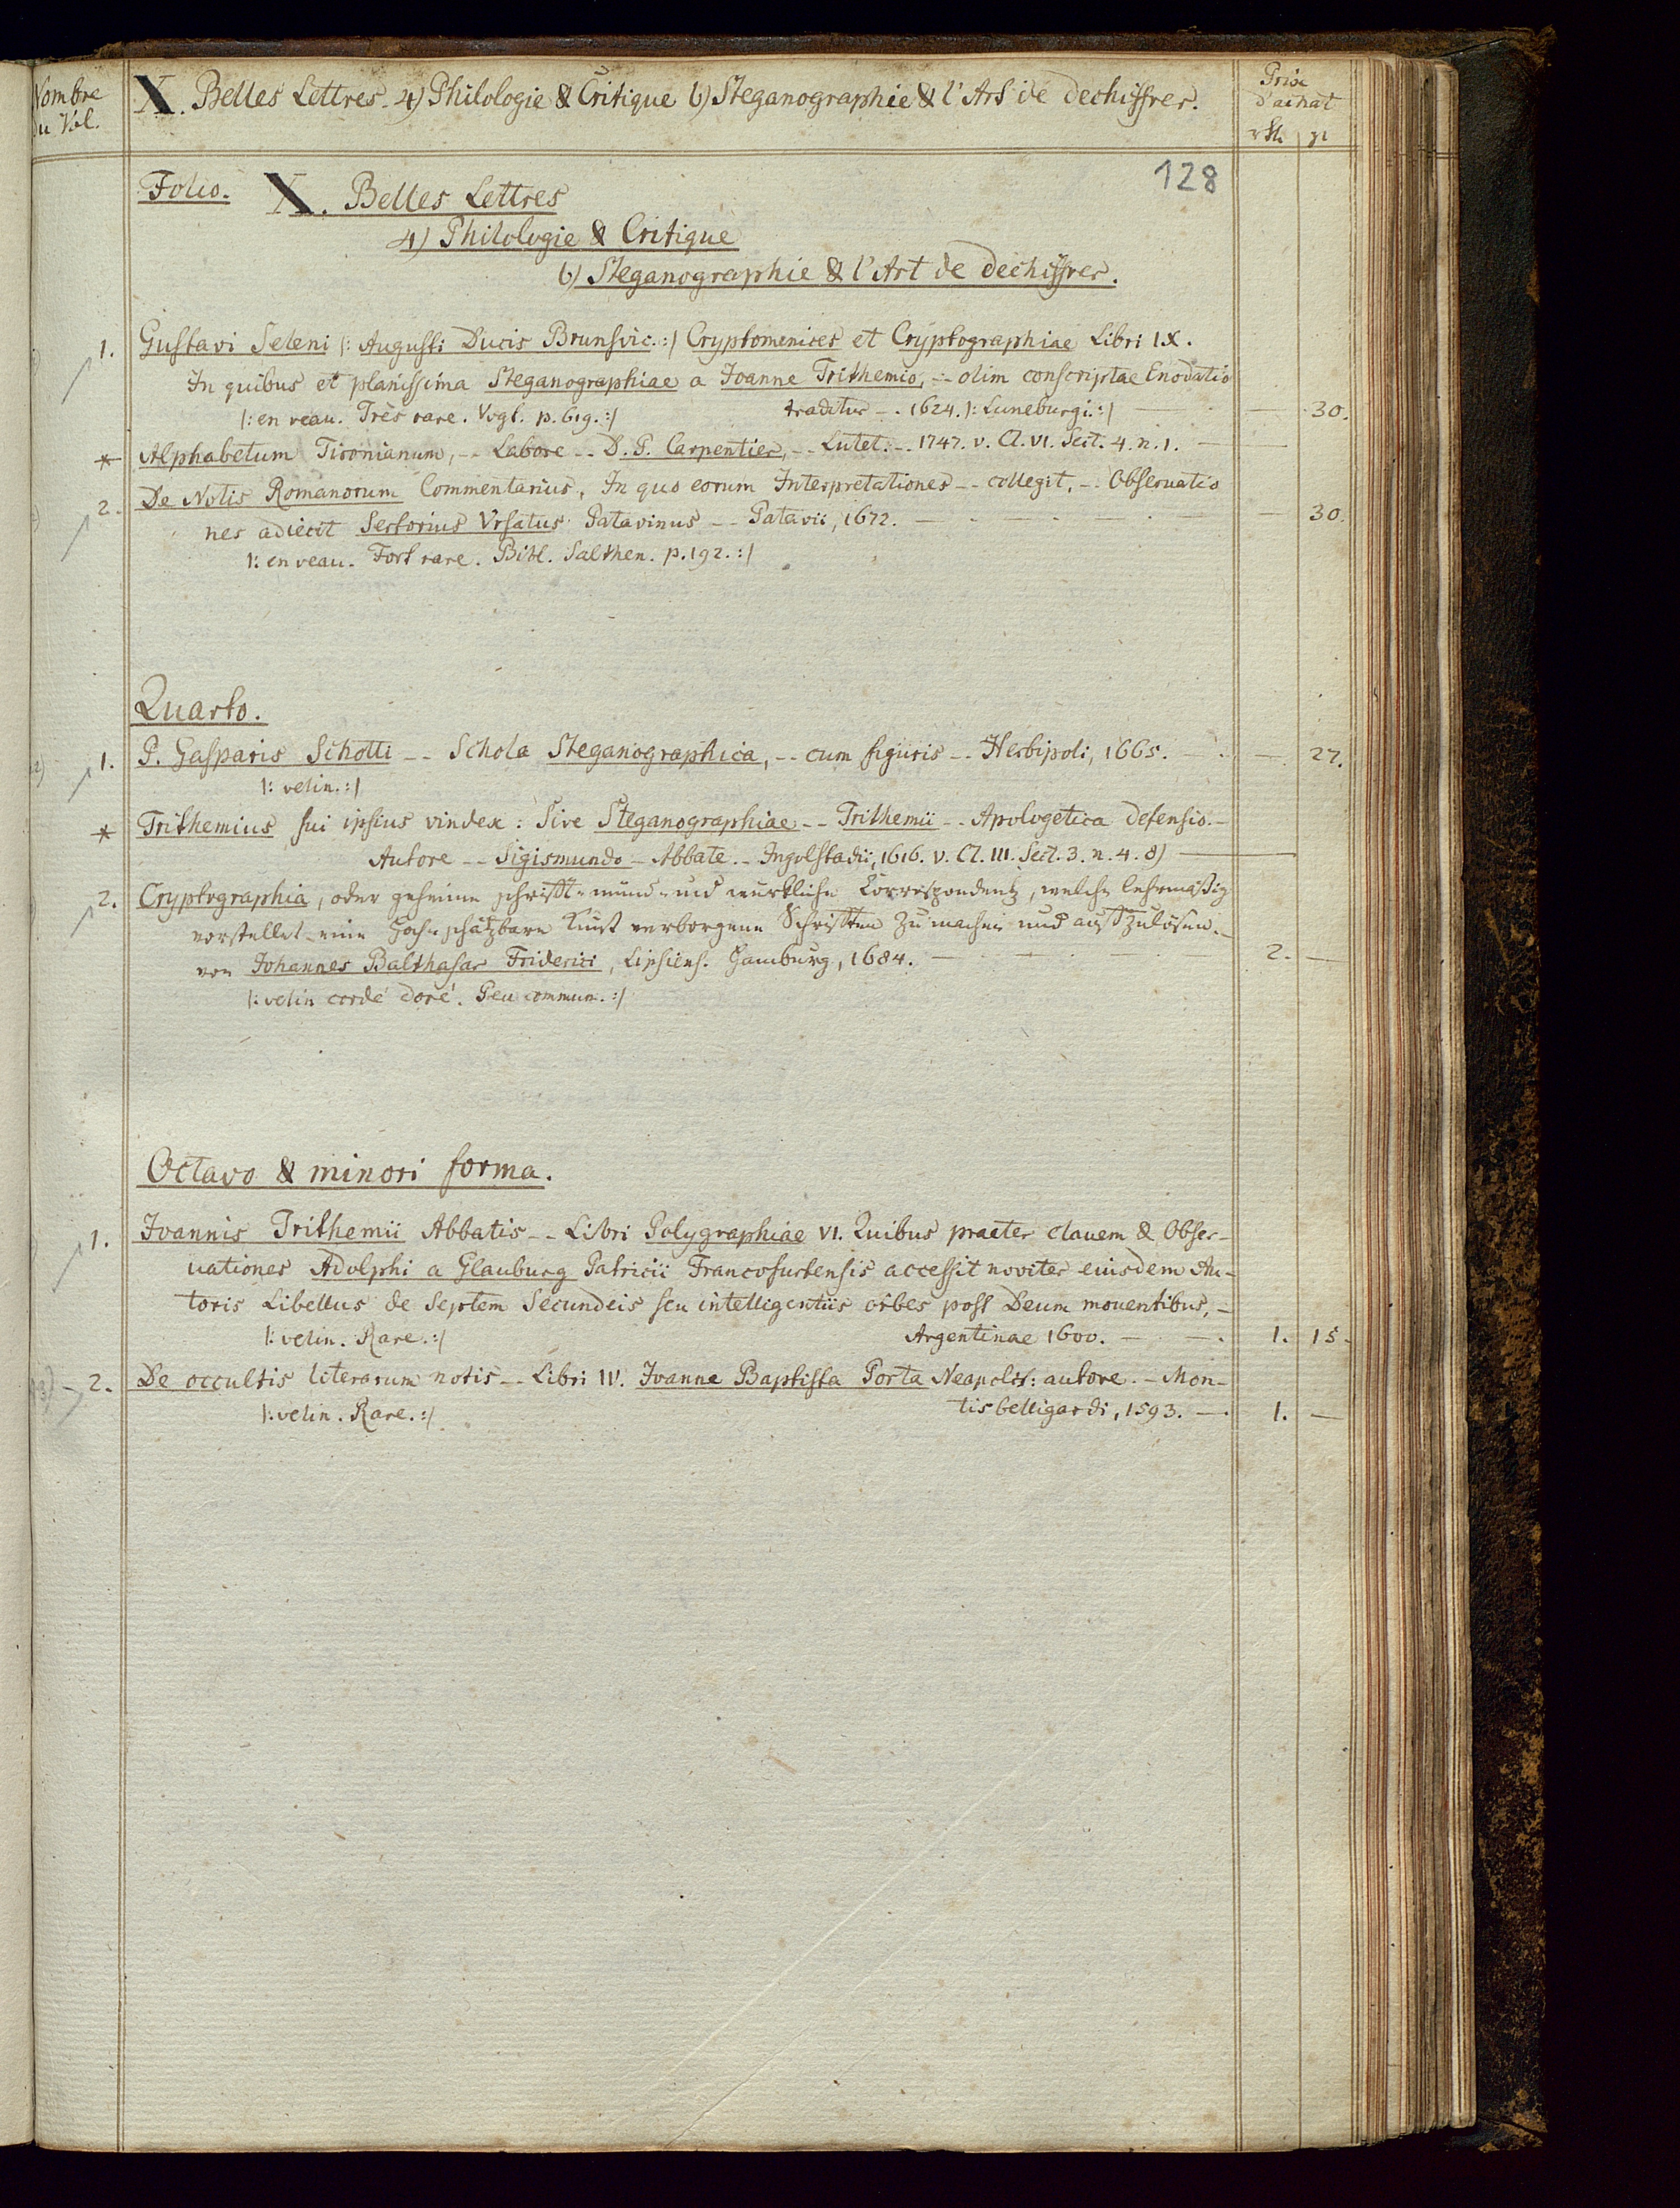 Nombre
du Vol.
X. Belles Lettres. 4) Philologie & Critique b) Steganographie & l'Art de dechiffrer.
Prix
d'achat
rth gr
128
Folio. X. Belles Lettres
4) Philologie & Critique
b) Steganographie & l'Art de dechiffrer.
1. Gustavi Seleni |: August: Ducis Brunsvic. :| Cryptomenices et Cryptographiae Libri IX.
In quibus et planissima Steganographiae a Joanne Trithemio, -- olim conscriptae Enodatio
traditur -- 1624. |: Luneburgi. :| — 30.
|: en veau. Très rare. Vogt. p. 619. :|
* Alphabetum Tironianum, -- Labore -- D. P. Carpentier, -- Lutet: -- 1747. v. Cl. VI. Sect. 4. n. 1. —
2. De Notis Romanorum Commentarius, In quo eorum Interpretationes -- collegit, -- Observatio
nes adiecit Sertorius Ursatus Patavinus -- Patavii, 1672. — 30.
|: en veau. Fort rare. Bibl. Salthen. p. 192. :|
Quarto.
1. P. Gasparis Schotti -- Schola Steganographica, -- cum figuris -- Herbipoli, 1665. — 27.
|: velin. :|
* Trithemius sui ipsius vindex: Sive Steganographiae -- Trithemii -- Apologetica defensio. -
Autore -- Sigismundo - Abbate -- Ingolstadii, 1616. v. Cl. III. Sect. 3. n. 4. 8) —
2. Cryptographia, oder geheime schrifft- münd- und würkliche Correspondentz, welche lehrmäßig
vorstellet - eine Hoch-schätzbare Kunst verborgene Schrifften zu machen und auffzulösen. -
von Johannes Balthasar Friderici, Lipsiens. Hamburg, 1684. — 2. —
|: velin cordé doré. Peu commun. :|
Octavo & minori forma.
1. Joannis Trithemii Abbatis -- Libri Polygraphiae VI. Quibus praeter clauem & Obser-
uationes Adolphi a Glauburg Patricii Francofurtensis accessit noviter eiusdem Au-
toris Libellus de Septem Secundeis seu intelligentiis orbes post Deum mouentibus, -
Argentinae 1600. — 1. 15.
|: velin. Rare. :|
2. De occultis literarum notis -- Libri IV. Joanne Baptista Porta Neapolit: autore. - Mon-
tisbelligardi, 1593. — 1. —
|: velin. Rare. :|